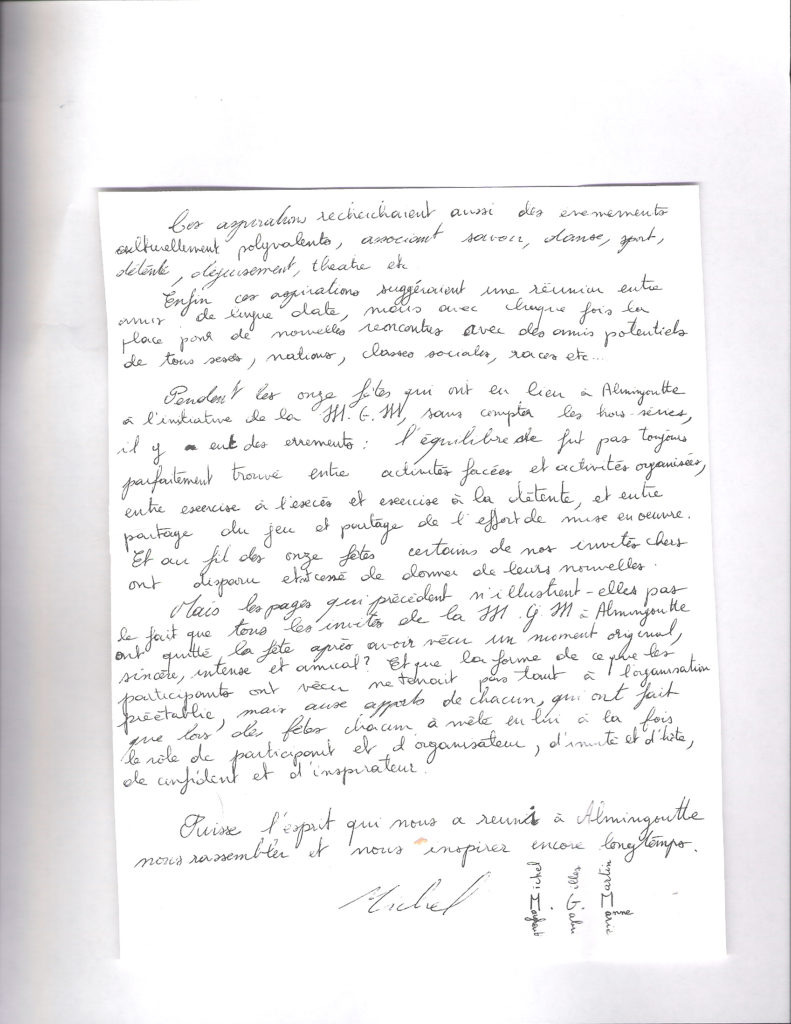 Ces aspirations recherchaient aussi des evenements
culturellement polyvalents, associant savoir, danse, sport,
détente, déguisement, theatre etc
Enfin ces aspirations suggéraient une réunion entre
amis de longue date, mais avec chaque fois la
place pour de nouvelles rencontres avec des amis potentiels
de tous sexes, nations, classes sociales, races etc...
Pendant les onze fêtes qui ont eu lieu à Almingoutte
à l'initiative de la M.G.M, sans compter les hors-séries,
il y a eu des errements : l'équilibre de fut pas toujours
parfaitement trouvé entre activités et activités organisées,
entre exercice à l'excès et exercice à la détente, et entre
partage du jeu et partage de l'effort de mise en oeuvre.
Et au fil des onze fêtes certains de nos invités chers
ont disparu et cessé de donner de leurs nouvelles.
Mais les pages qui précèdent n'illustrent-elles pas
le fait que tous les invités de la M.G.M à Almingoutte
ont quitté la fête après avoir vécu un moment original,
sincère, intense et amical? Et que la forme de ce que les
participants ont vécu ne tenait pas tant à l'organisation
préétablie, mais aux apports de chacun, qui ont fait
que lors des fêtes chacun à mêlé en lui à la fois
le rôle de participant et d'organisateur, d'invité et d'hôte,
de confident et d'inspirateur.
Puisse l'esprit qui nous a reuni à Almingoutte
nous rassembler et nous inspirer encore longtemps.
Michel
Michel
Gilles
Martin
Marianne